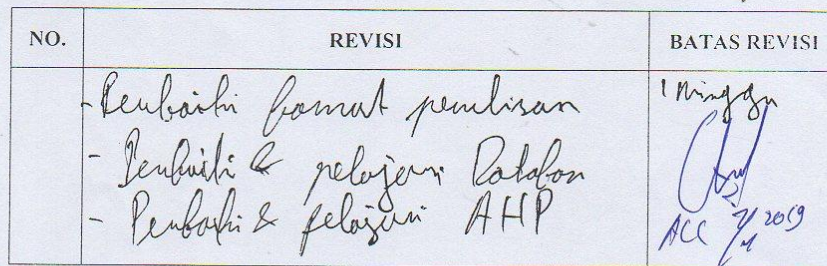 NO. REVISI BATAS REVISI
- Perbaiki format penulisan 1 Minggu
- Perbaiki & pelajari Database
- Perbaiki & pelajari AHP
ACC 2019